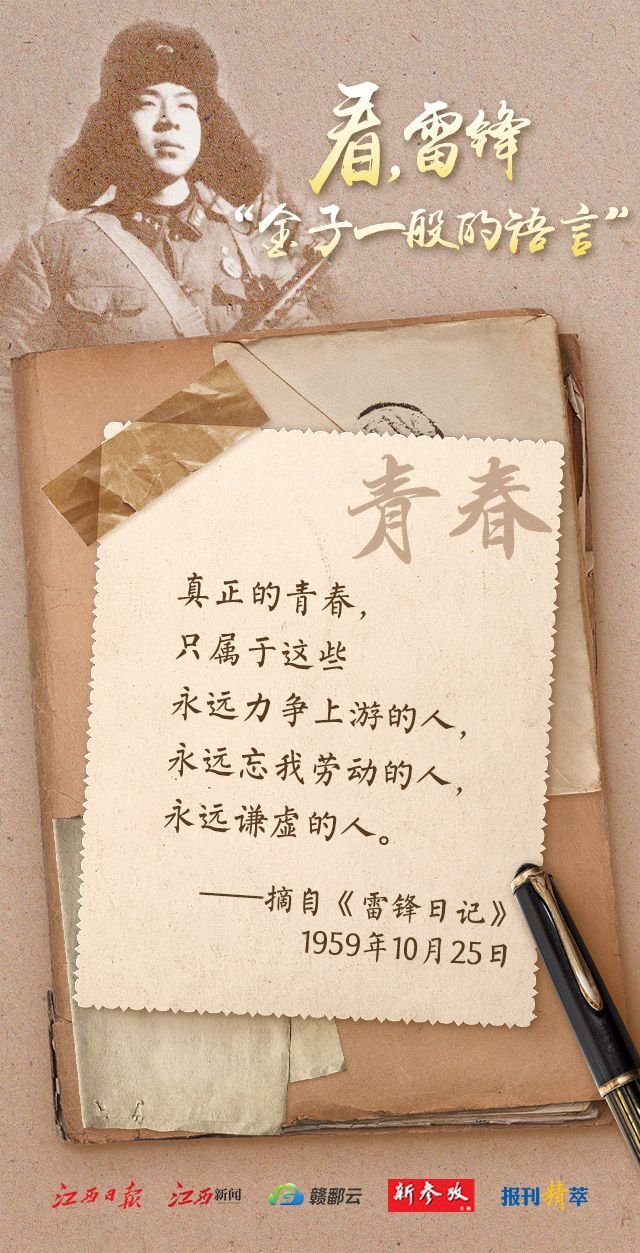 看,雷锋
“金子一般的语言”
青春
真正的青春，
只属于这些
永远力争上游的人，
永远忘我劳动的人，
永远谦虚的人。
——摘自《雷锋日记》
1959年10月25日
江西日报 江西新闻 赣鄱云 新参考 报刊精萃